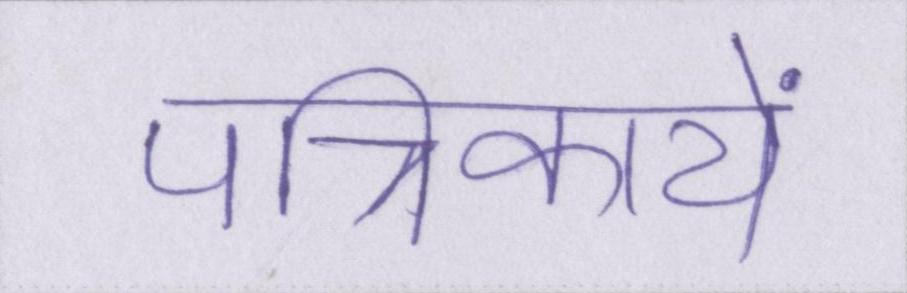 पत्रिकायें